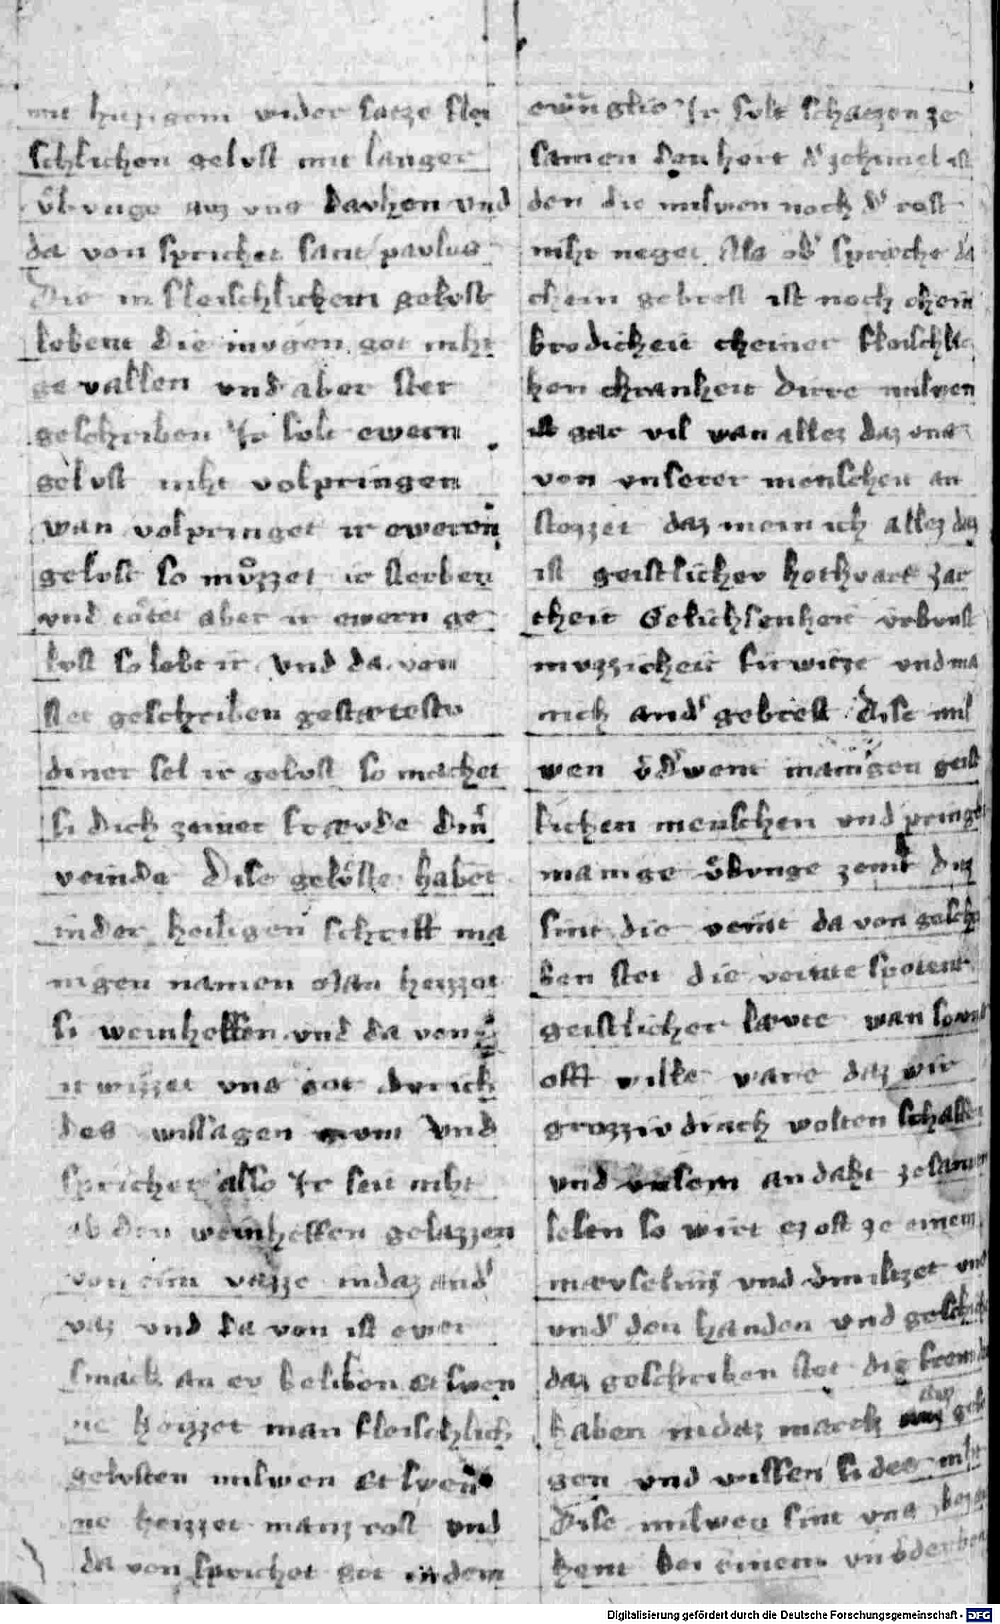 mit hizzigem wider satze flei
schlichen gelust mit langer
vͤbunge auz uns dauhen und
da von sprichet sant paulus
Die in fleischlichem gelust
lebent die mugen got niht
gevallen und aber stet
geschriben Ir sult ewern
gelust niht volpringen
wan volpringet ir ewern
gelust so muͦzzet ir sterben
und toͤtet aber ir ewern ge
lust so lebt ir Und da von
stet geschriben gestatestu
diner sel ir gelust so machet
si dich zeiner fræude diner
veinde Dise geluͤste habent
in der heiligen schrift ma
nigen namen Man heizzet
si weinheffen und da von
it wizzet uns got durich
des wissagen und
sprichet also Ir seit niht
ab den weinheffen gelazzen
von eim vazze in daz and'
vaz und da von ist ewer
smack an ev beliben Etswen
ne heizzet man fleischlich
gelusten milwen Etswen
ne heizzet manz rost und
da von sprichet got in dem
ewangelio Ir sult schatzen ze
samen den hort d' ze himel ist
den die milwen noch d' rost
niht neget Als ob' spræche da
chein gebrest ist noch chein
brodicheit cheiner fleischli
hen chrankeit dirre milwen
ist gar vil wan allez daz uns
von unserer menscheit an
stozzet daz mein ich allez daz
ist geistlicher hochvart zar
cheit Gelichsenheit urbunst
muzzicheit firwitze und ma
nich and' gebrest Dise mil
wen manigen geist
lichen menschen und pringet
manige vͤbunge diz
sint die veint da von geschri
ben stet die veinte spotent
geistlicher lævte wan so wir
oft wille ware daz wir
grozziv dinch wolten schaffen
und unsern andaht zesamen
lesen so wirt ez oft ze einem
und
und' den handen und geschiht
daz geschriben stet die fremden
haben in daz march auz geso
gen und wissen si des niht
Dise milwen sint uns
bei einem